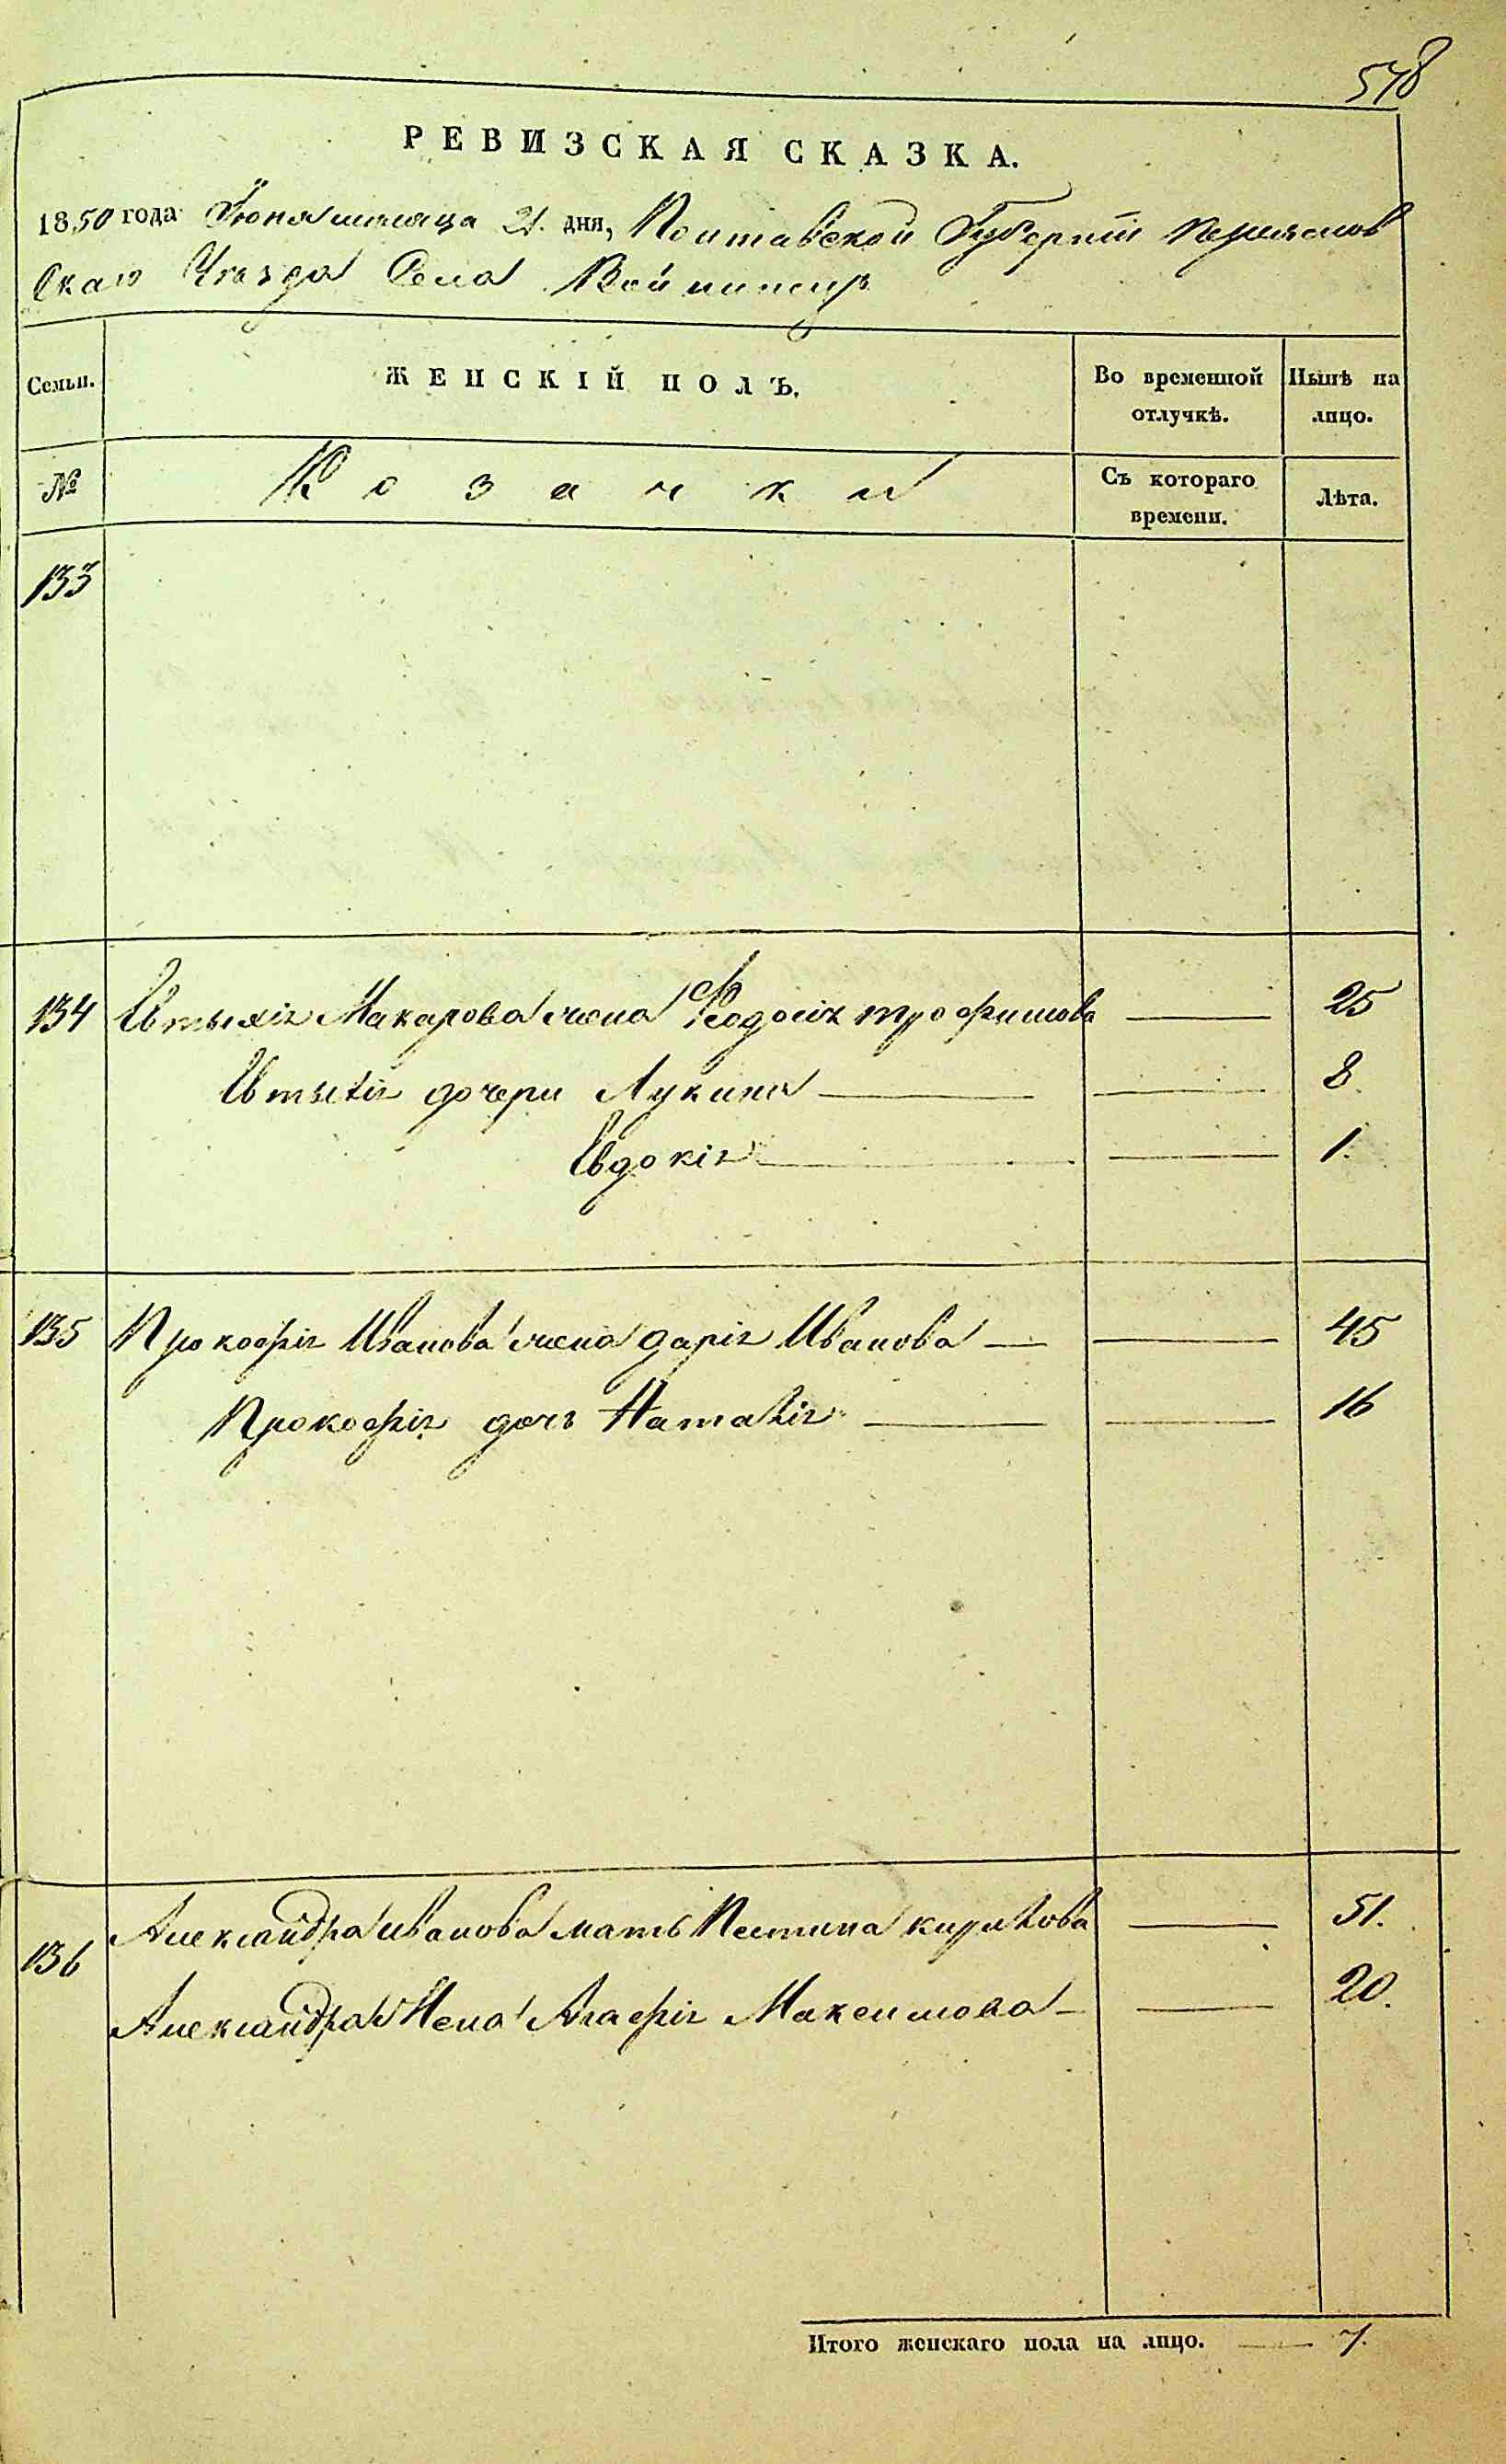 578
РЕВИЗСКАЯ СКАЗКА.
1850 года Июня месяца 21. дня, Полтавской Губерніи Переяслов
скаго Уезда Села Войтовцы
Семьи.
ЖЕНСКІЙ ПОЛЪ.
Во временной отлучкѣ.
Нынѣ на лицо.
№
Козачки
Съ котораго времени.
Лѣта.
133
134 Евтыхія Макарова жена Феодосія трофимова — 25
Евтыхія дочери Лукина — 8
Евдокія — 1.
135 Прокофія Иванова жена дарія Иванова — 45
Прокофія дочь Наталія — 16
136 Александра иванова мать кирилова — 51.
Александра Жена Агафія Максимова — 20.
Итого женскаго пола на лицо. — 7.